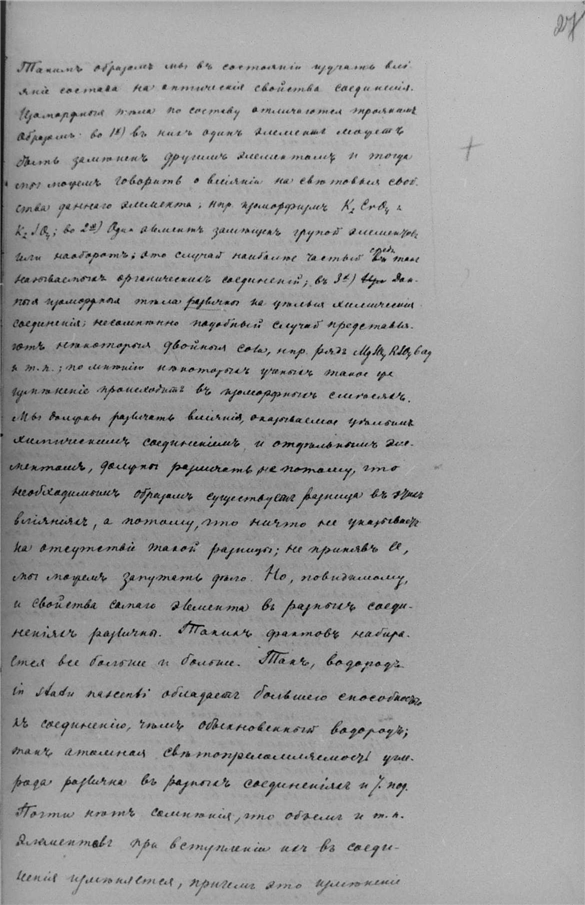 27
Такимъ образомъ мы въ состояніи изучать влі
яніе состава на оптическія свойства соединенія.
Изоморфныя тѣла по составу отличаются троякимъ
образомъ: во 1х) въ нихъ одинъ элементъ можетъ
быть замѣненъ другимъ элементомъ и тогда
мы можемъ говорить о вліяніи на свѣтовыя свой-
ства даннаго элемента; нпр. изоморфизмъ K2CrO4 и
K2SO4; во 2х) Одинъ элементъ замѣщенъ групой элементовъ
или наоборотъ; это случай наиболѣе частый въ средѣ такъ
называемыхъ органическихъ соединеній; въ 3х) дан-
ныя изоморфныя тѣла различны на цѣлыя химическія
соединенія; несомнѣнно подобный случай представля-
ютъ нѣкоторыя двойныя соли, нпр. рядъ
и т.п.; по мнѣнію нѣкоторыхъ ученыхъ такое же
измѣненіе происходитъ въ изоморфныхъ смѣсяхъ.
Мы должны различать вліянія, оказываемое цѣлымъ
химическимъ соединеніемъ и отдѣльнымъ эле-
ментомъ, должны различать не потому, что
необходимымъ образомъ существуетъ разница въ этихъ
вліяніяхъ, а потому, что ничто не указываетъ
на отсутствіе такой разницы; не принявъ ее,
мы можемъ запутать дѣло. Но, повидимому,
и свойства самаго элемента въ разныхъ соеди-
неніяхъ различны. Такихъ фактовъ набира-
ется все больше и больше. Такъ, водородъ
in statu nascenti обладаетъ большею способностью
къ соединенію, чѣмъ обыкновенный водородъ;
такъ атомная свѣтопреломляемость угле-
рода различна въ разныхъ соединеніяхъ и т. под.
Почти нѣтъ сомнѣнія, что объемъ и т.п.
элементовъ при вступленіи ихъ въ соеди-
ненія измѣняется, причемъ это измѣненіе